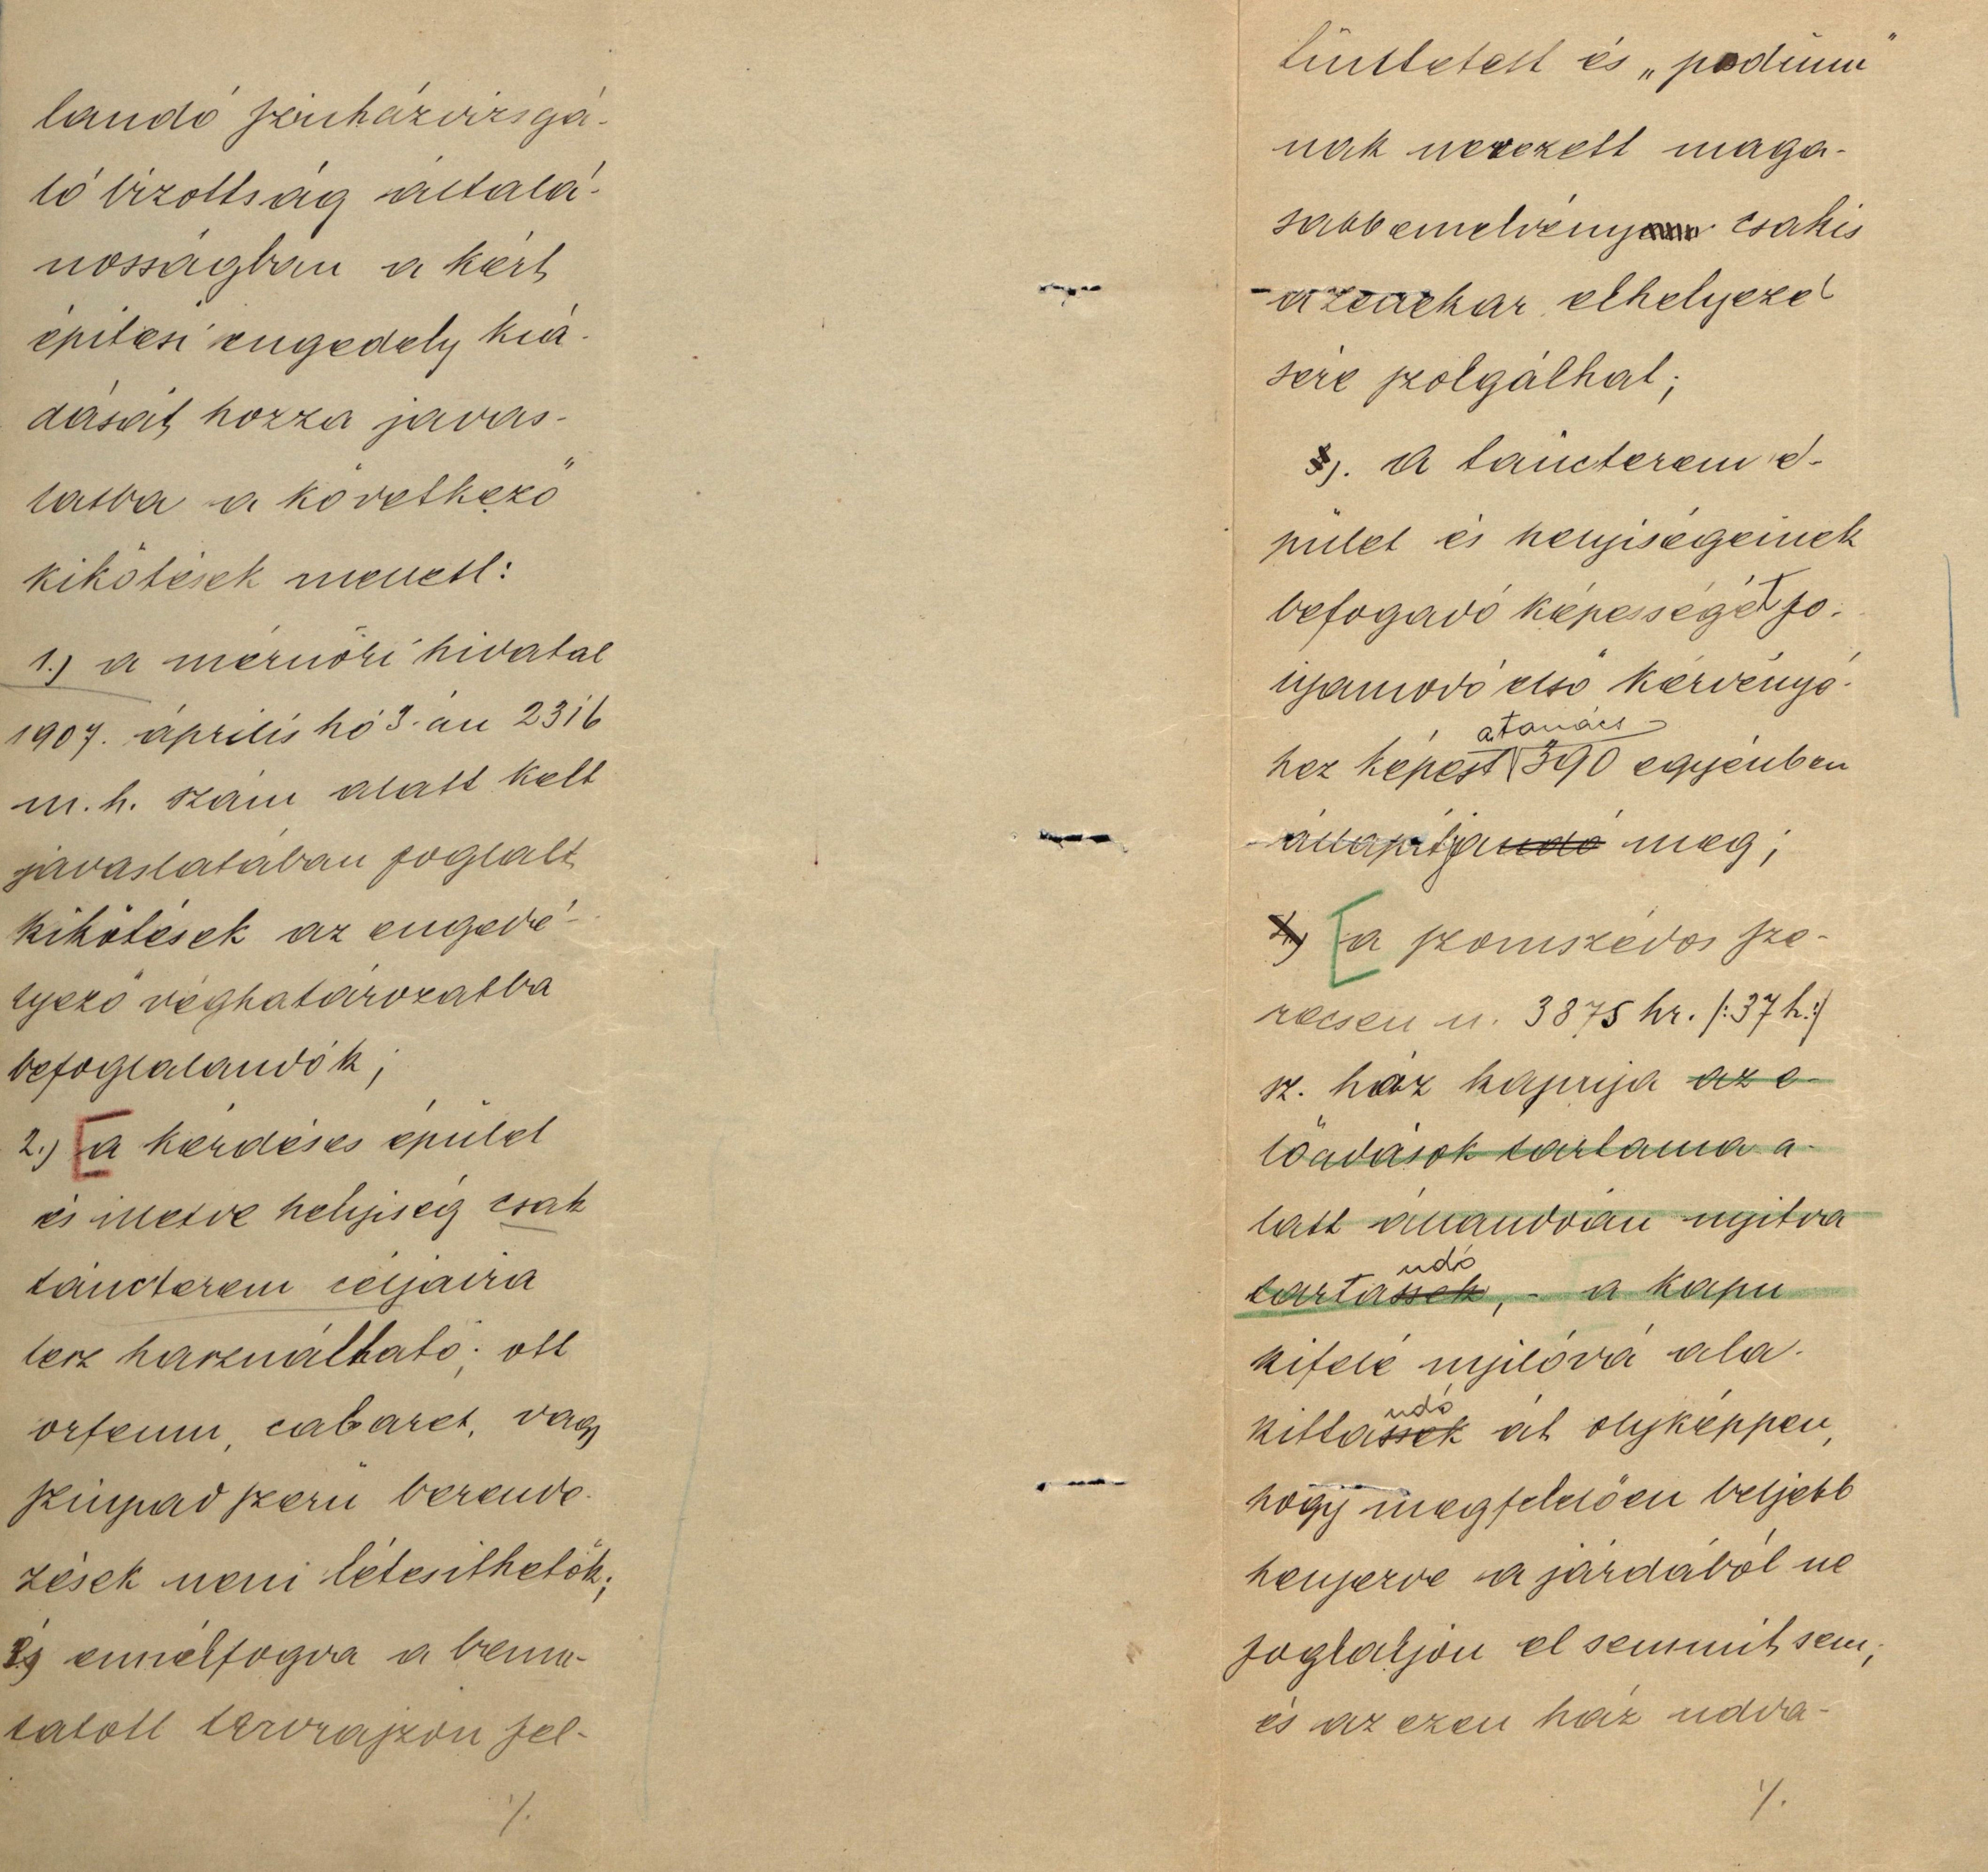 landó szinházvizsgá-
ló bizottság általá-
nosságban a kért
épitési engedély kia-
dását hozza javas-
latba a következő
kikötések mellett:
1.) a mérnöki hivatal
1907. április hó 3-án 2316
m. h. szám alatt kelt
javaslatában foglalt
kikötések az engedé-
lyező véghatározatba
befoglalandók;
2.) [a kérdéses épület
és illetve helyiség csak
táncterem céljaira
lesz használható; ott
orfeum, cabaret, vagy
szinpad szerű berende-
zések nem létesithetők;
és ennélfogva a bemu-
tatott tervrajzon fel-
./.
tüntetett és „podium"
nak nevezett maga-
sabb emelvény csakis
a zenekar elhelyezé
sére szolgálhat;
3). A táncterem é-
pület és helyiségeinek
befogadó képességét fo-
lyamodó első kérvényé-
a tanács
hez képest 390 egyénben
állapitjandó meg;
[a szomszédos Sze-
recsen u. 3875 hr. /:37 h:/
sz. ház kapuja az e-
lőadások tartama a-
latt állandóan nyitva
ndó
tartassék, - a kapu
kifelé nyilóvá ala-
ndó
kittassék át olyképpen,
hogy megfelelően beljebb
helyezve a járdából ne
foglaljon el semmit sem;
és az ezen ház udva-
./.